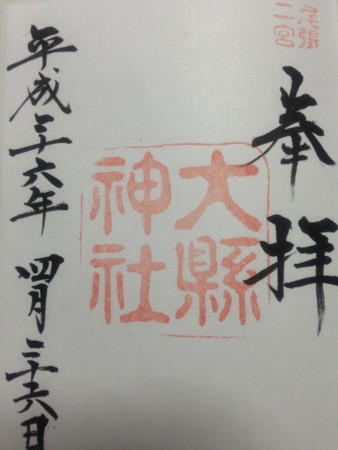 尾張
二宮
奉拝
大縣
神社
平成二十六年 四月二十六日